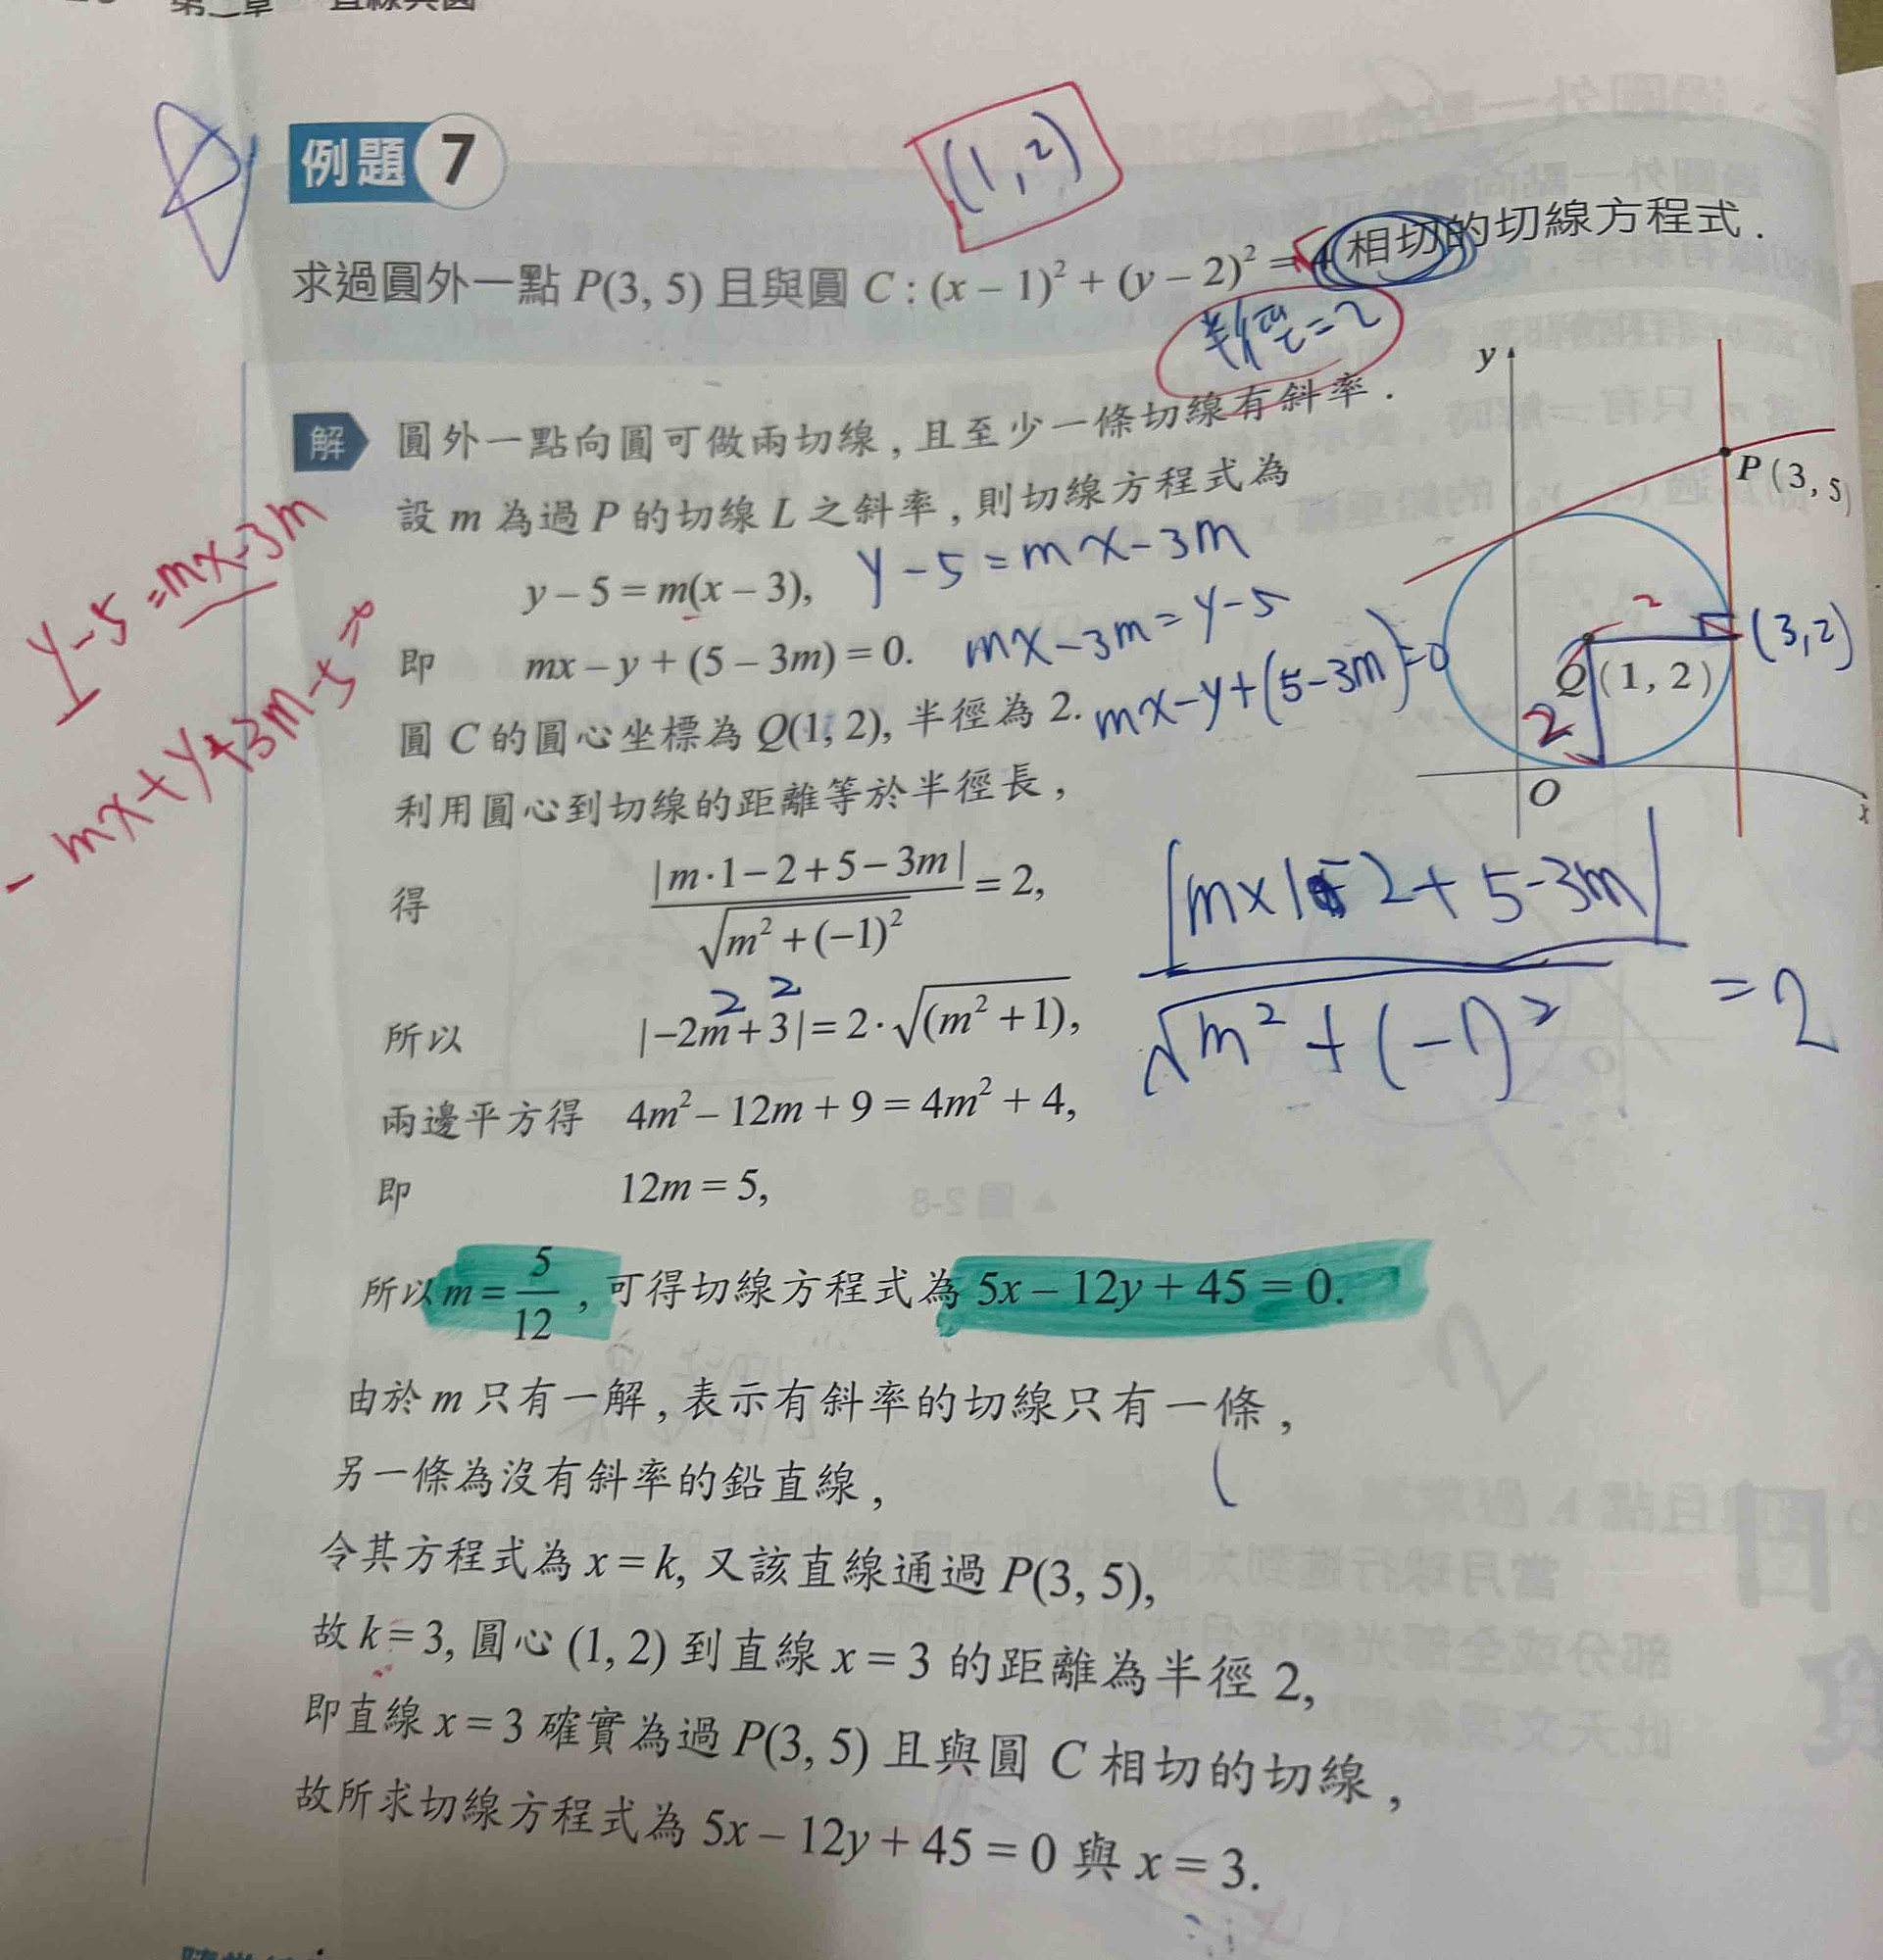 例題 7
(1, 2)
求過圓外一點 P(3, 5) 且與圓 C : (x − 1)² + (y − 2)² = 4 相切的切線方程式 .
半徑 = 2
解 圓外一點向圓可做兩切線 , 且至少一條切線有斜率 .
設 m 為過 P 的切線 L 之斜率 , 則切線方程式為
y − 5 = m(x − 3), y − 5 = mx − 3m
y − 5 = mx − 3m
即 mx − y + (5 − 3m) = 0. mx − 3m = y − 5
− mx + y + 3m − 5 = 0
圓 C 的圓心坐標為 Q(1, 2), 半徑為 2. mx − y + (5 − 3m) = 0
利用圓心到切線的距離等於半徑長 ,
y
P (3, 5)
2
(3, 2)
Q (1, 2)
2
O
x
得 |m · 1 − 2 + 5 − 3m| / √(m² + (−1)²) = 2,
|m × 1 − 2 + 5 − 3m| / √(m² + (−1)²) = 2
2 2
所以 |−2m + 3| = 2 · √(m² + 1),
兩邊平方得 4m² − 12m + 9 = 4m² + 4,
即 12m = 5,
所以 m = 5/12 , 可得切線方程式為 5x − 12y + 45 = 0.
由於 m 只有一解 , 表示有斜率的切線只有一條 ,
另一條為沒有斜率的鉛直線 ,
令其方程式為 x = k, 又該直線通過 P(3, 5),
故 k = 3, 圓心 (1, 2) 到直線 x = 3 的距離為半徑 2,
即直線 x = 3 確實為過 P(3, 5) 且與圓 C 相切的切線 ,
故所求切線方程式為 5x − 12y + 45 = 0 與 x = 3.